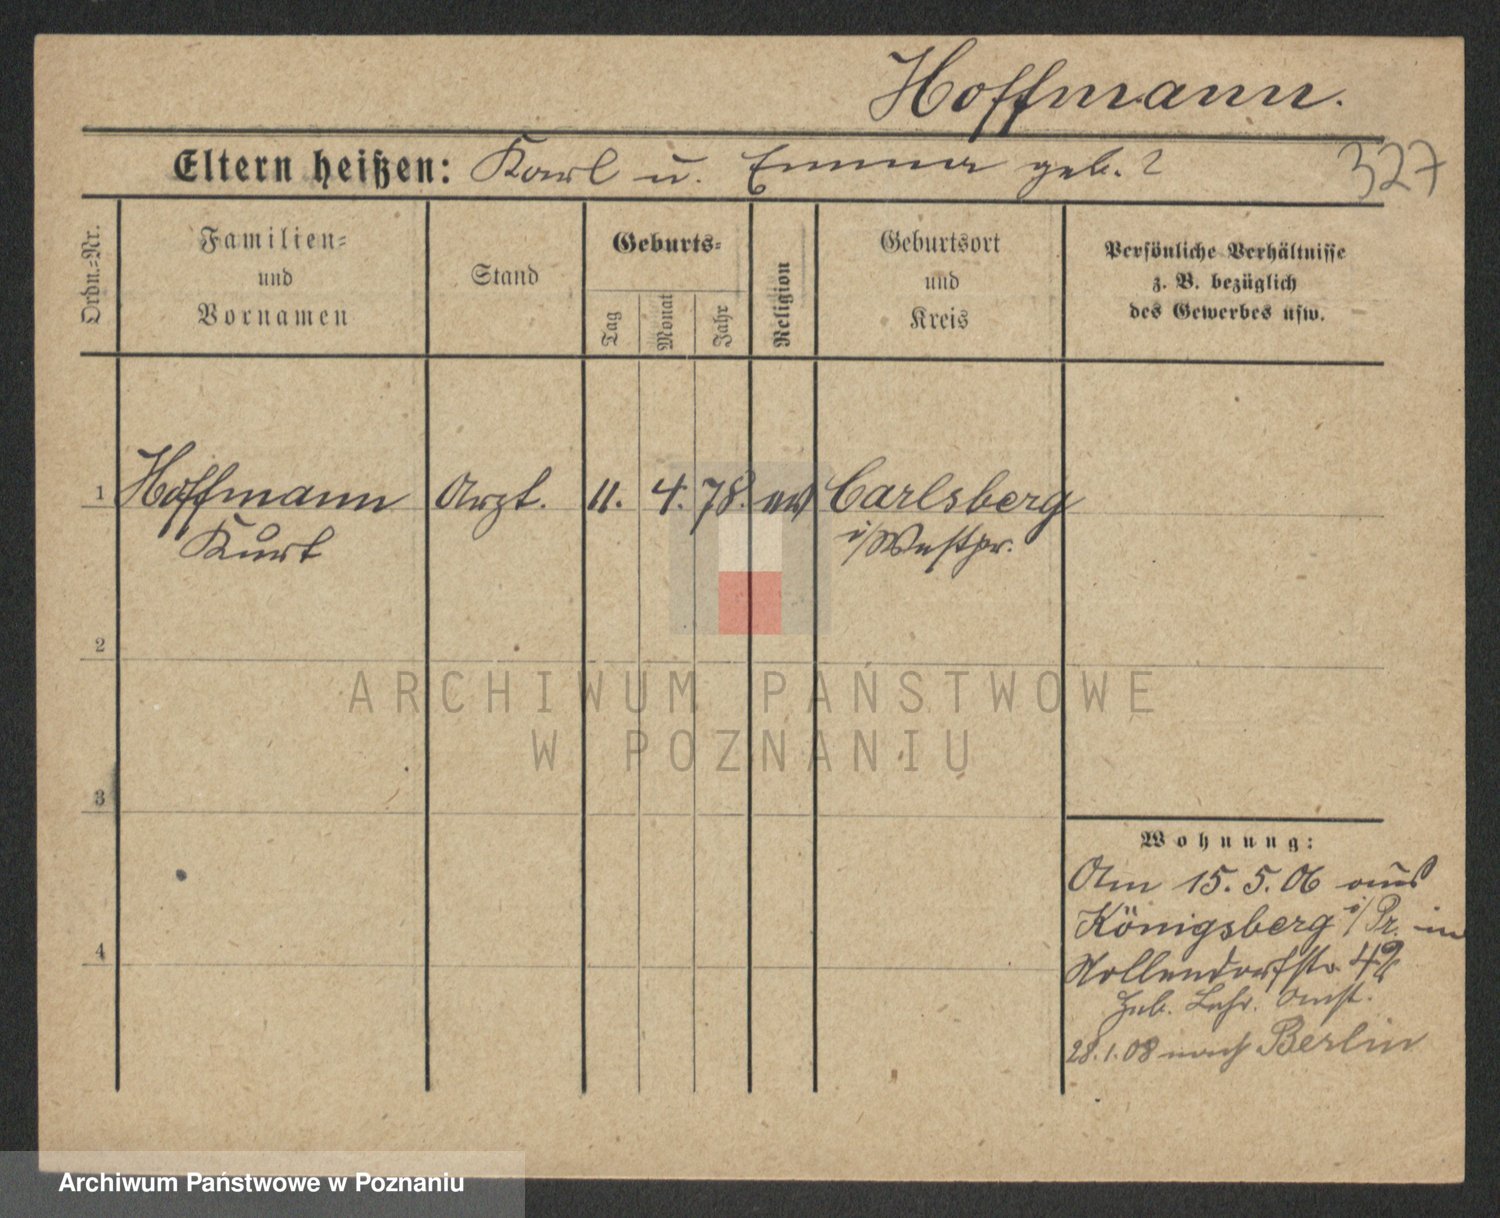 Hoffmann.
Eltern heißen: Karl u. Emma geb. ?
327
Ordn.=Nr.
Familien=
und
Vornamen
Stand
Geburts=
Tag
Monat
Jahr
Religion
Geburtsort
und
Kreis
Persönliche Verhältnisse
z. B. bezüglich
des Gewerbes usw.
1 Hoffmann Arzt. 11. 4. 78. ev Carlsberg
Kurt i/Westpr.
2
3
4
ARCHIWUM PAŃSTWOWE
W POZNANIU
Wohnung:
Am 15. 5. 06 aus
Königsberg i/Pr. in
Nollendorfstr. 42
Heb. Lehr. Anst.
28. 1. 08 nach Berlin
Archiwum Państwowe w Poznaniu